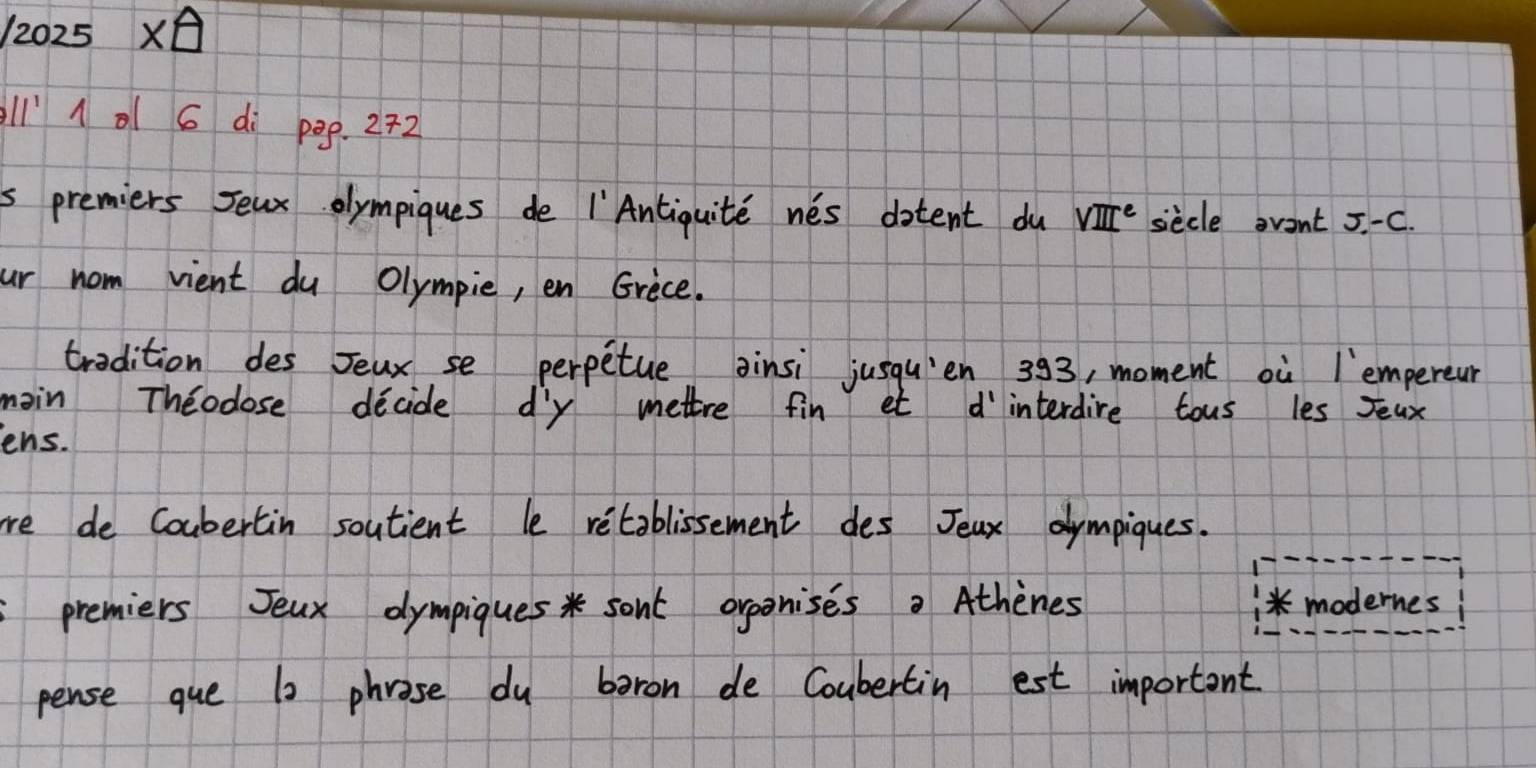 /2025 X
all' 1 al 6 di pag. 272
s premiers Jeux olympiques de l'Antiquité nés datent du VIIIe siècle avant J.-C.
ur nom vient du Olympie, en Grèce.
tradition des Jeux se perpétue ainsi jusqu'en 393, moment où l'empereur
main Théodose décide d'y mettre fin et d'interdire tous les Jeux
ens.
re de Coubertin soutient le rétablissement des Jeux olympiques.
s premiers Jeux olympiques * sont organisés a Athènes
* modernes
pense que la phrase du baron de Coubertin est important.